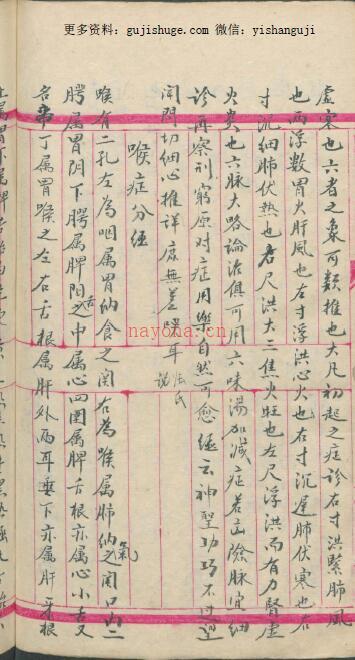 更多资料：gujishuge.com 微信：yishanguji
虚寒也六者之象可類推也大凡初起之症診右寸洪緊肺風
也两浮数胃火肝風也左寸浮洪心火也右寸沉遲肺伏寒也右
寸沉細肺伏熱也左尺洪大三焦火旺也左尺浮洪而有力腎虚
火炎也六脉大略論治俱可用六味湯加減症若凶險脉宜細
診再察形窮原对症用藥自然可愈經云神聖功巧不过望
聞問切細心推詳庶無差誤耳 張氏說
喉症分經
喉有二孔左為咽属胃納食之関右為喉属肺納氣之関口内上
腭属胃阴下腭属脾阳舌之中属心四圍属脾舌根亦属心小舌又
名帝丁属胃喉之左右舌根属肝外两耳垂下亦属肝牙根
nayona.cn